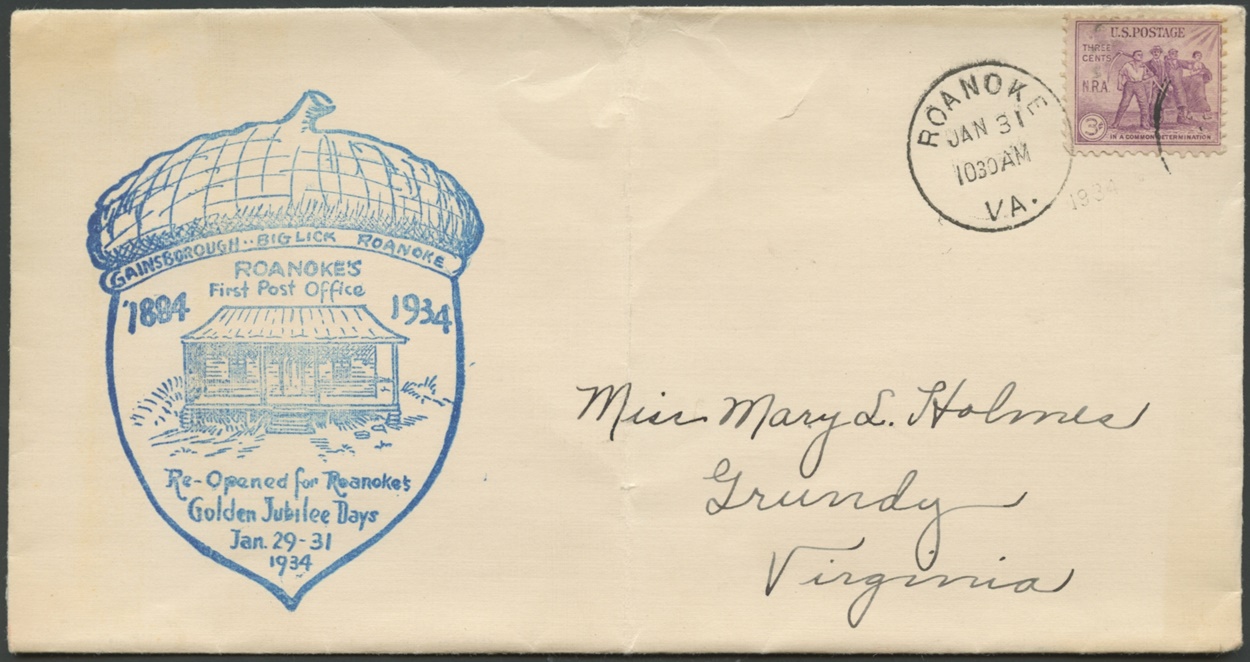 GAINSBOROUGH·· BIG LICK ROANOKE
ROANOKE'S
First Post Office
1884 1934
Re-Opened for Roanoke's
Golden Jubilee Days
Jan. 29-31
1934
ROANOKE
JAN 31
1030 AM
VA.
1934
U.S. POSTAGE
THREE
CENTS
N.R.A.
3¢
IN A COMMON DETERMINATION
Miss Mary L. Holmes
Grundy
Virginia